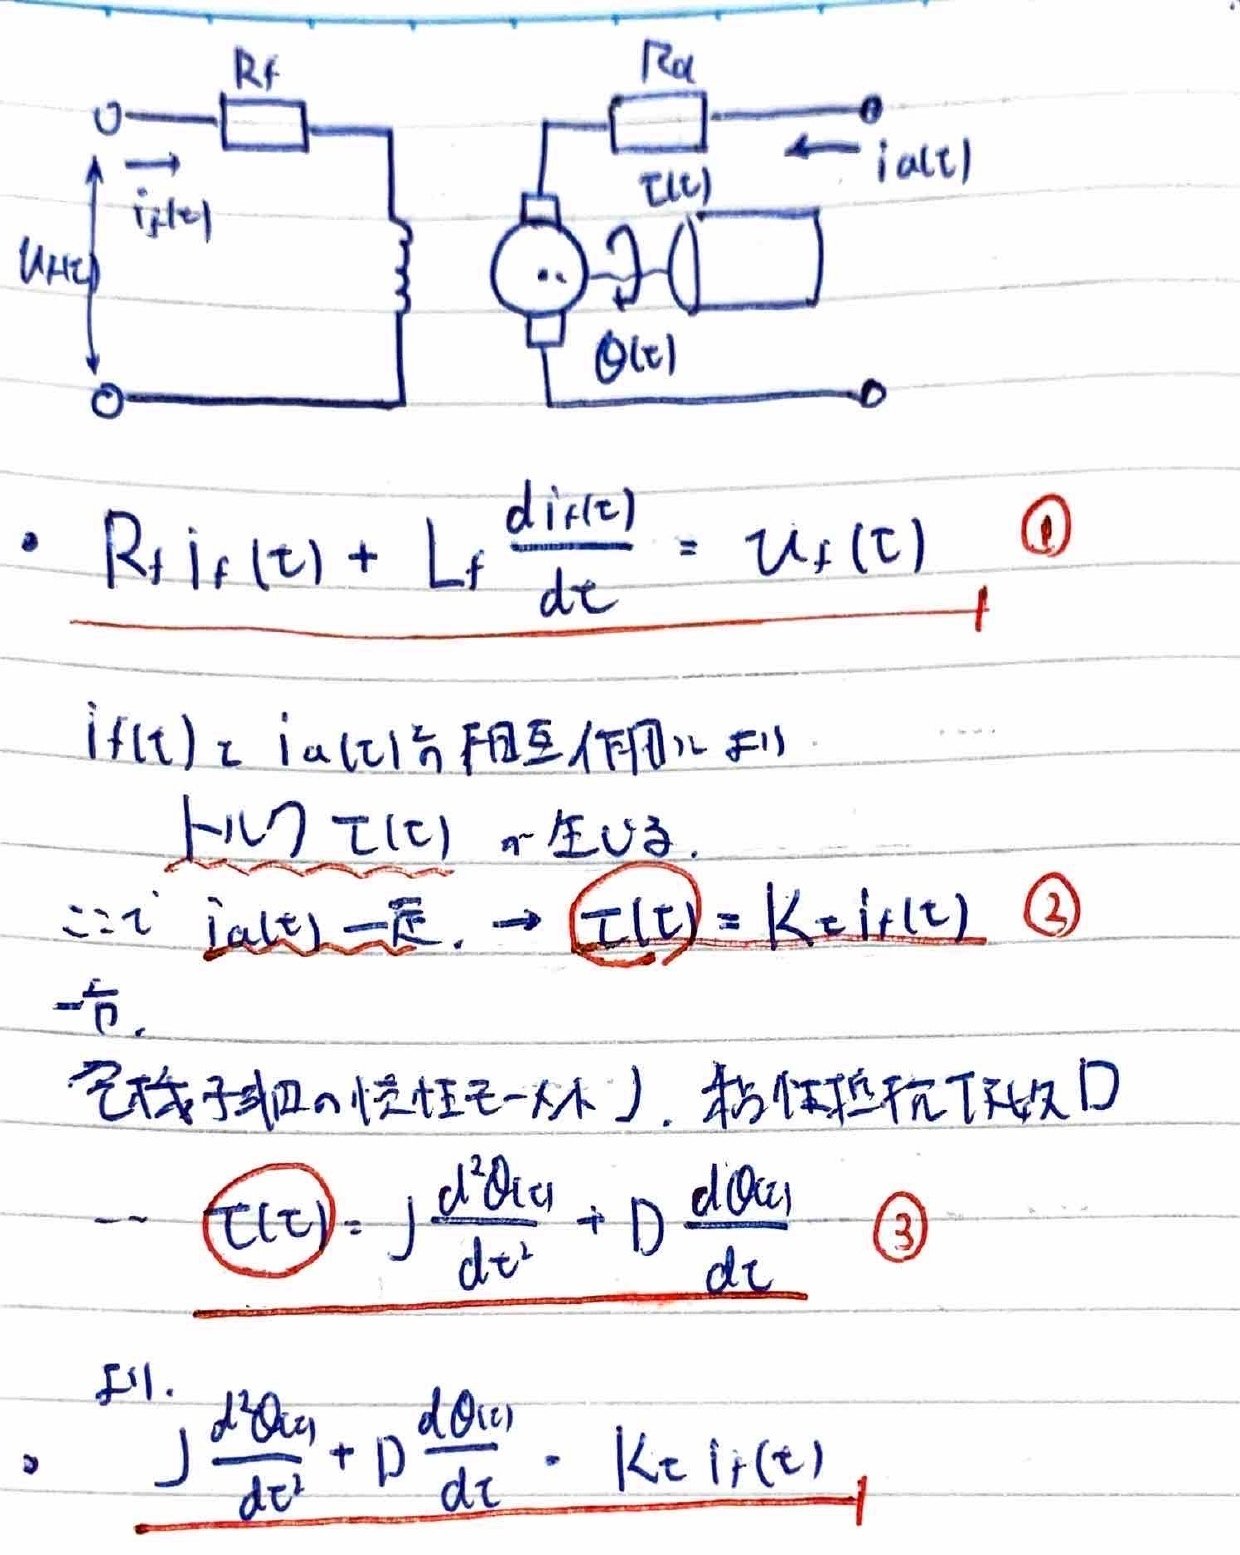 Rf
Ra
if(t)
ia(t)
τ(t)
uf(t)
θ(t)
・ Rf if(t) + Lf dif(t)/dt = uf(t) ①
if(t)と ia(t)の相互作用により
トルク τ(t) が生じる.
ここで ia(t)一定. → τ(t) = Kτ if(t) ②
一方.
電機子軸回の慣性モーメント J. 粘性抵抗係数 D
τ(t) = J d²θ(t)/dt² + D dθ(t)/dt ③
より.
J d²θ(t)/dt² + D dθ(t)/dt = Kτ if(t)